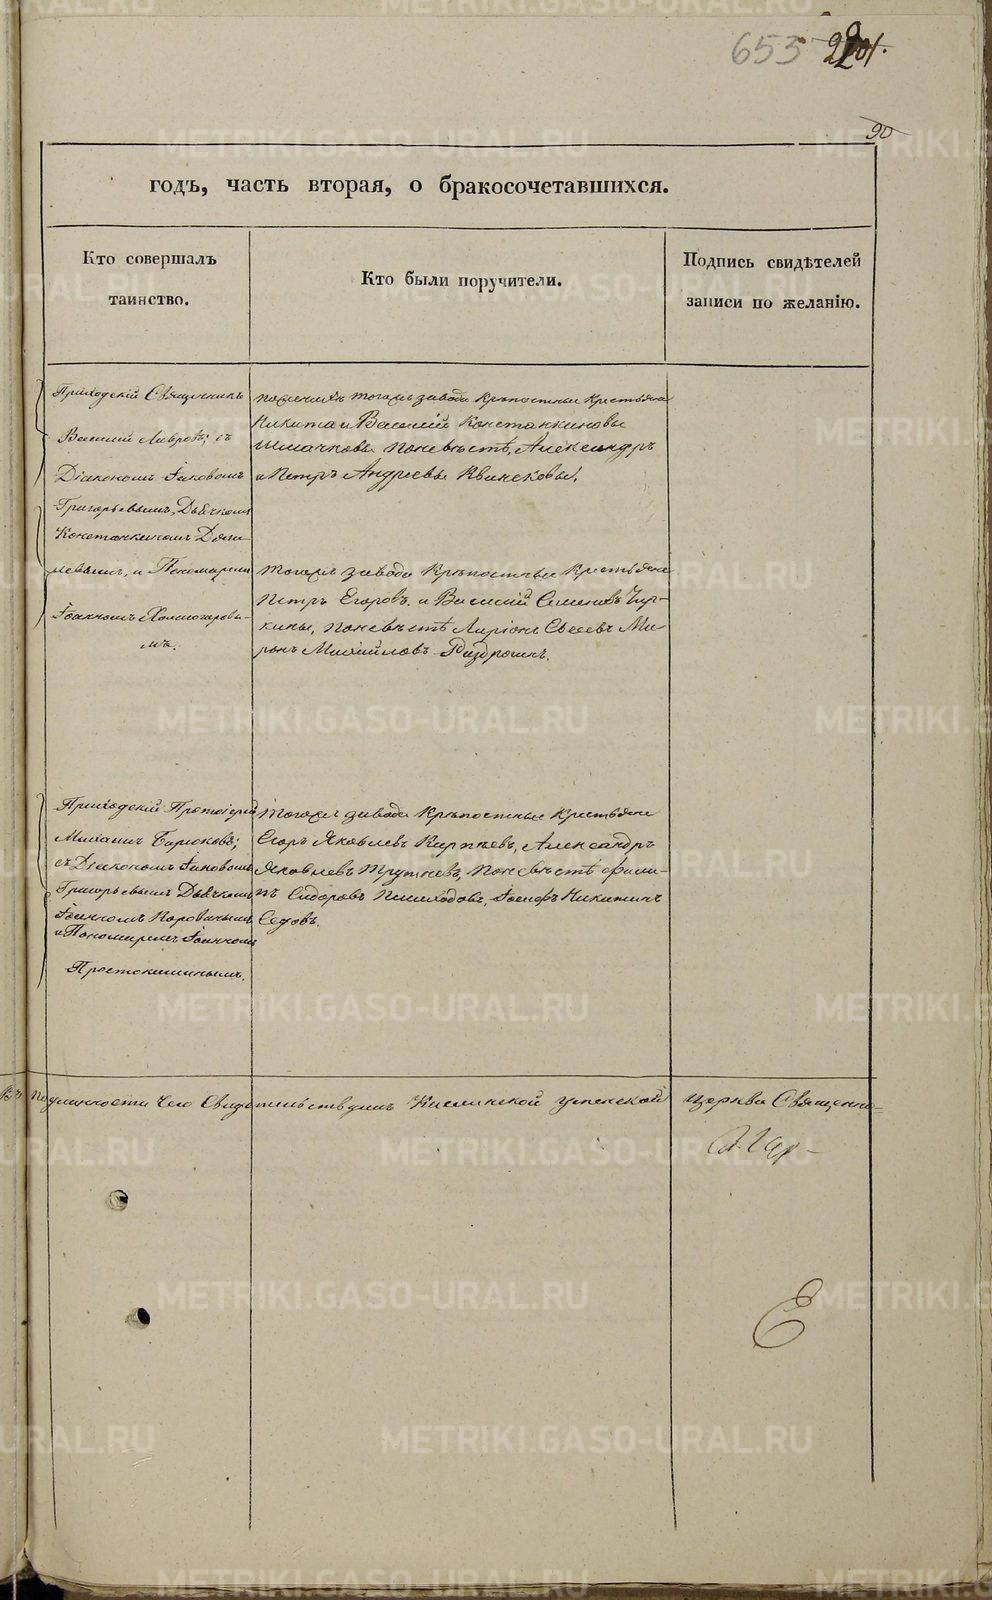 653 2201.
90
годъ, часть вторая, о бракосочетавшихся.
Кто совершалъ
таинство.
Кто были поручители.
Подпись свидѣтелей
записи по желанію.
Приходскій Священникъ
Василій Лавровъ; съ
Діакономъ Іаковомъ
Григорьевымъ, Дьячкомъ
Константиномъ
и Пономаремъ
Іоанномъ Холмогоровы-
мъ.
по женихѣ тогожъ завода крѣпостные крестьяне
Никита и Василій Константиновы
по невѣстѣ, Александръ
и Петръ Андреевы
Тогожъ завода крѣпостные крестьяне
Петръ Егоровъ и Василій Семеновъ Чур-
кины, по невѣстѣ Ларіонъ Евсеевъ Ми-
ронъ Михайловъ
Приходскій Протоіерей
Михаилъ Бирюковъ;
съ Діакономъ Іаковомъ
Григорьевымъ Дьячкомъ
Іоанномъ
и Пономаремъ Іоанномъ
Простокишинымъ.
Тогожъ завода крѣпостные крестьяне
Егоръ Яковлевъ Киритьевъ, Александръ
Яковлевъ Трутневъ, по невѣстѣ Фили-
пъ Сидоровъ Іосифъ Никитинъ
Седовъ.
Въ подлинности чего Свидѣтельствуемъ Каслинской Успенской церкви Священно-
METRIKI.GASO-URAL.RU